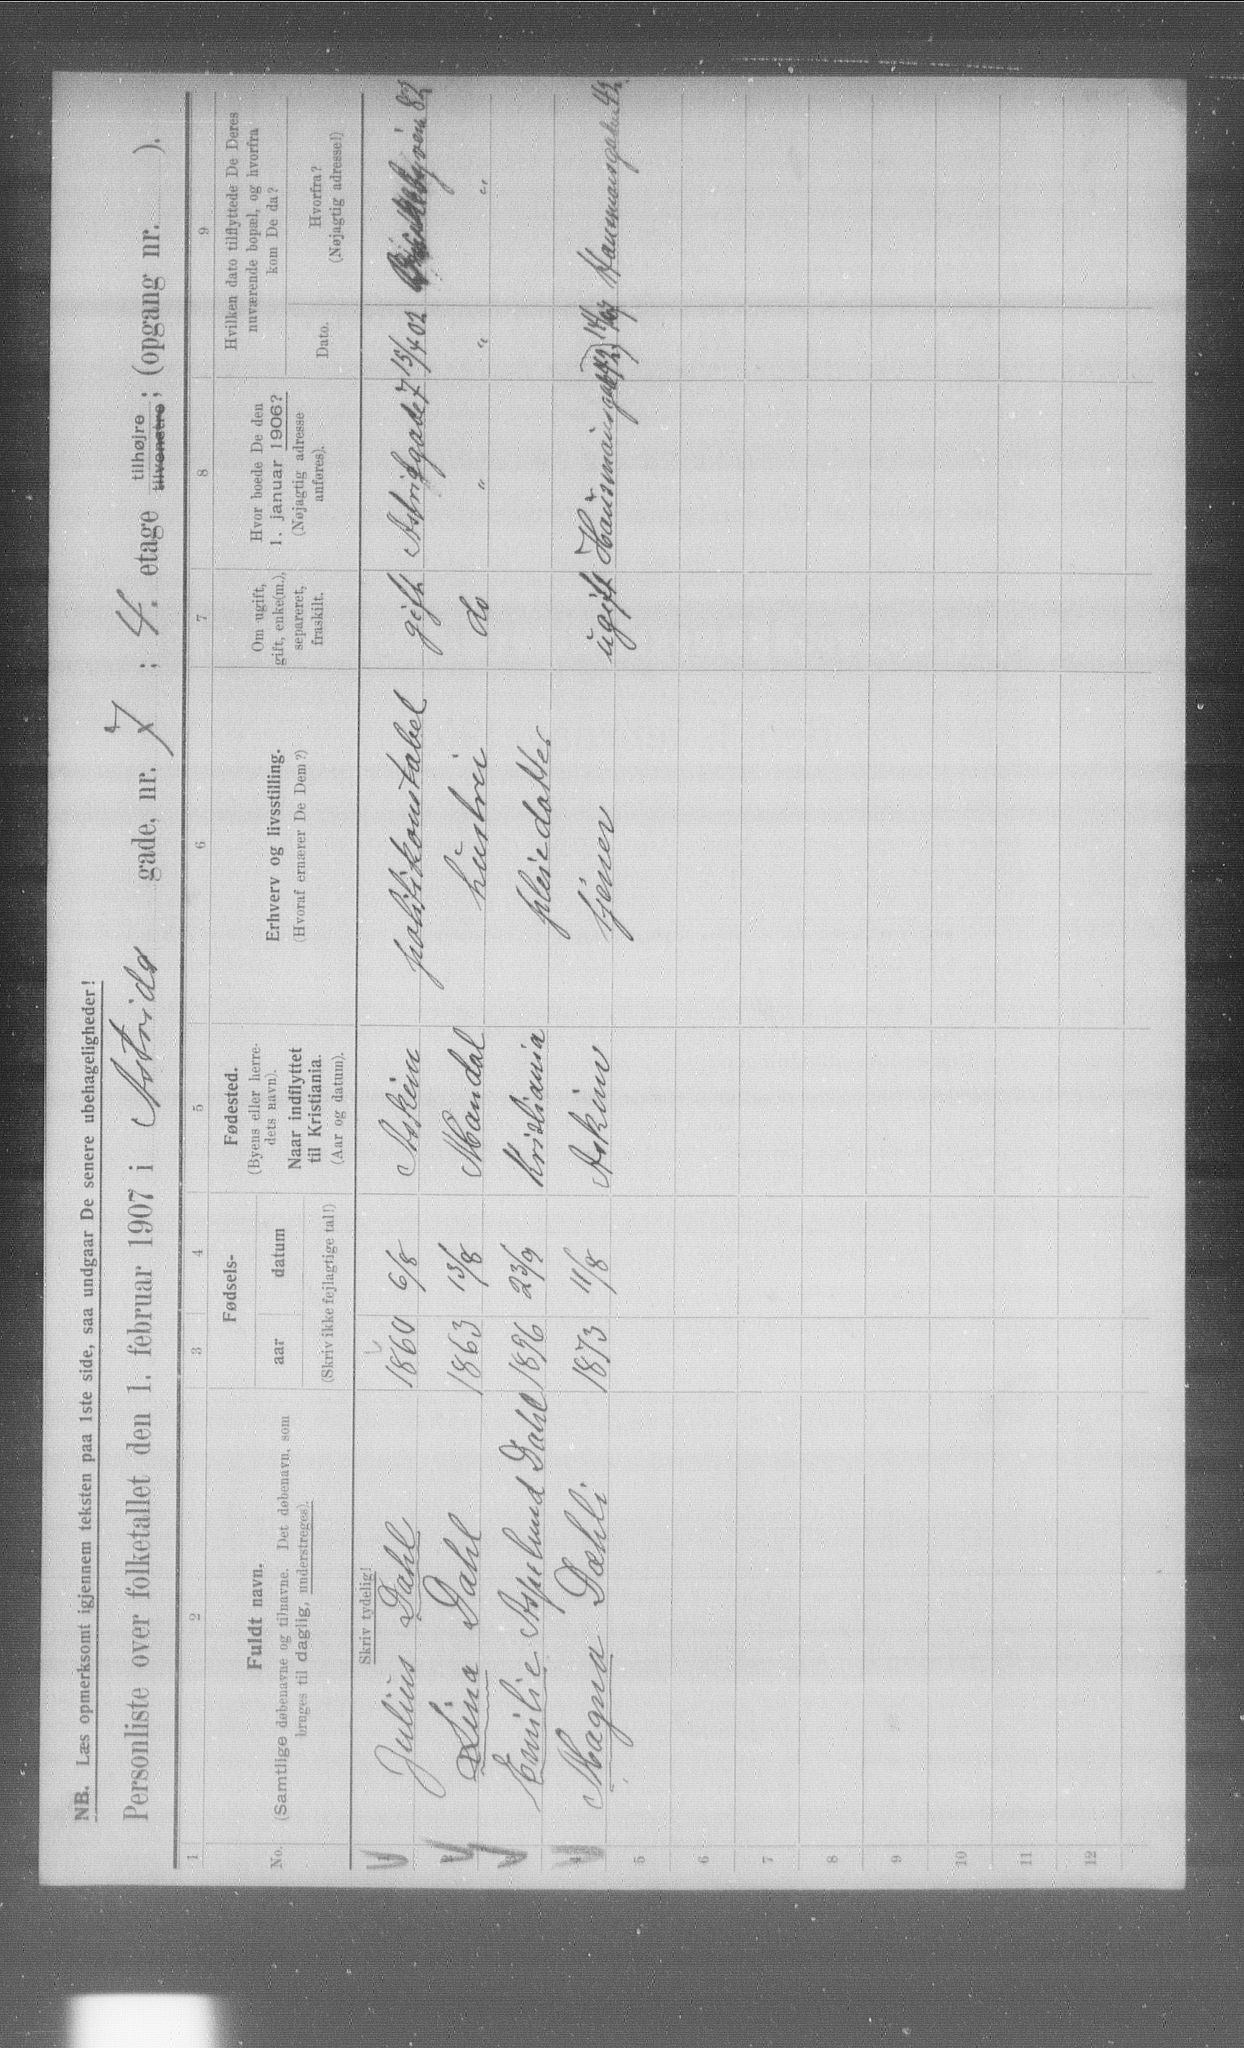 NB. Læs opmerksomt igjennem teksten paa 1ste side, saa undgaar De senere ubehageligheder!
Personliste over folketallet den 1. februar 1907 i Astrids gade, nr. 7; 4. etage tilhøjre tilvenstre; (opgang nr. ).
1 2 3 4 5 6 7 8 9
No.
Fuldt navn.
(Samtlige døbenavne og tilnavne. Det døbenavn, som
bruges til daglig, understreges).
Fødsels-
aar datum
(Skriv ikke fejlagtige tal!)
Fødested.
(Byens eller herre-
dets navn).
Naar indflyttet
til Kristiania.
(Aar og datum).
Erhverv og livsstilling.
(Hvoraf ernærer De Dem?)
Om ugift,
gift, enke(m.),
separeret,
fraskilt.
Hvor boede De den
1. januar 1906?
(Nøjagtig adresse
anføres).
Hvilken dato tilflyttede De Deres
nuværende bopæl, og hvorfra
kom De da?
Dato.
Hvorfra?
(Nøjagtig adresse!)
Skriv tydelig!
1 Julius Dahl 1860 6/8 Askim politikonstabel gift Astridsgade 7 15/4 02 82
2 Lina Dahl 1863 13/8 Mandal hustru do " " "
3 Emilie Asplund Dahl 1896 23/9 Kristiania pleiedatter
4 Magna Dæhli 1873 11/8 Askim tjener ugift Hausmansgade 42
5
6
7
8
9
10
11
12